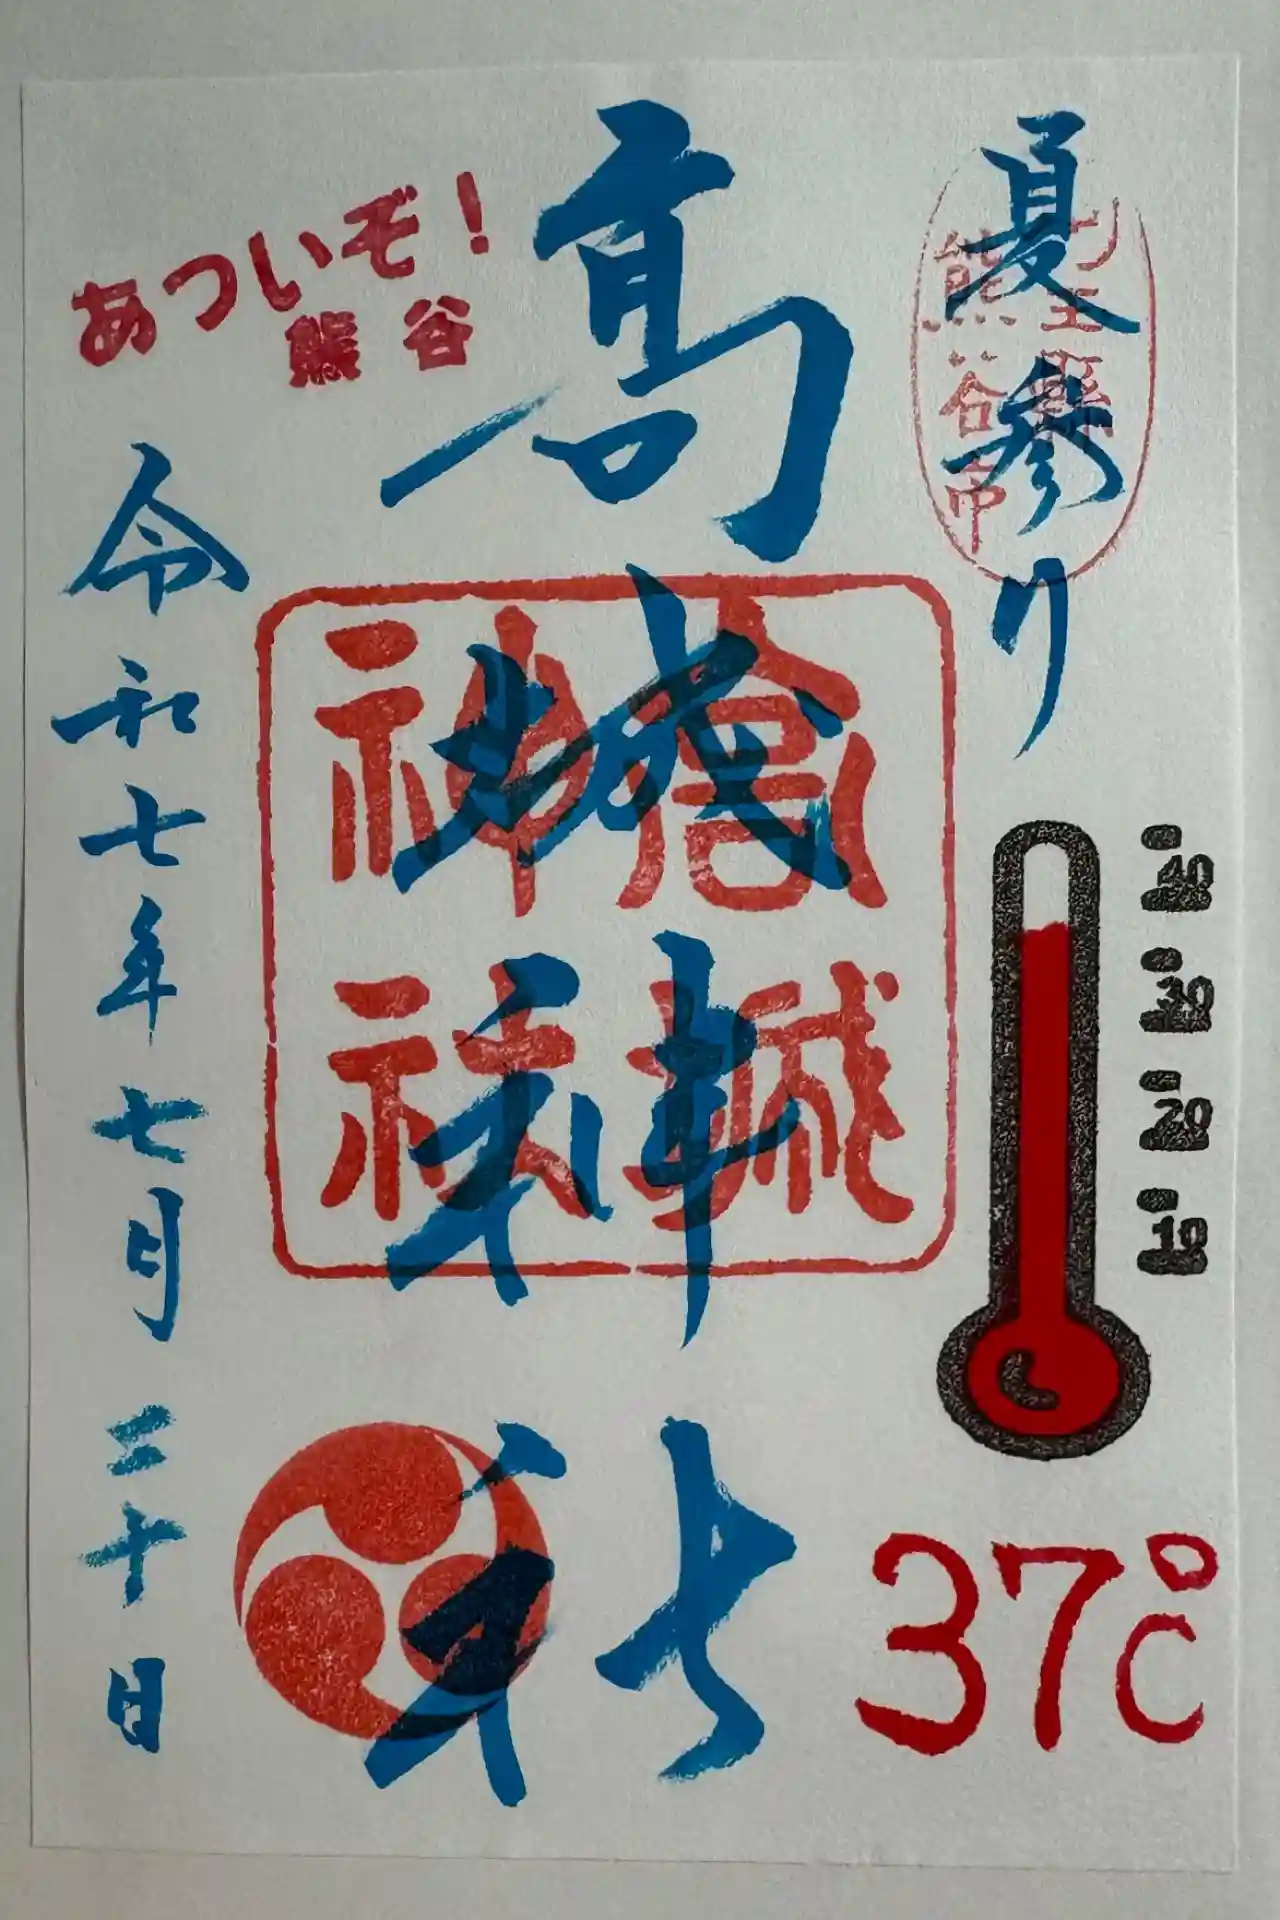 夏参り
埼玉縣
熊谷市
高城神社
高城
神社
あついぞ！
熊谷
令和七年七月三十日
40
30
20
10
37℃